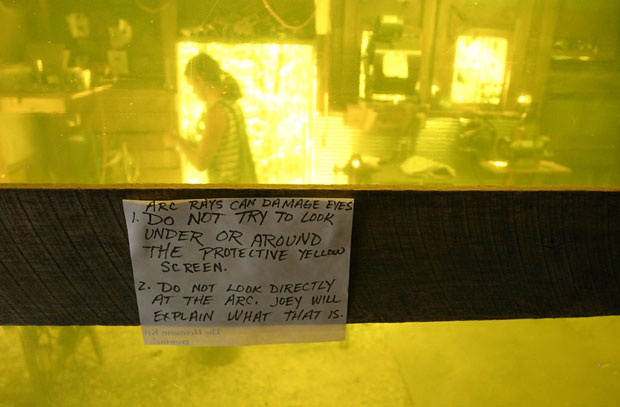 ARC RAYS CAN DAMAGE EYES
1. DO NOT TRY TO LOOK
UNDER OR AROUND
THE PROTECTIVE YELLOW
SCREEN.
2. DO NOT LOOK DIRECTLY
AT THE ARC. JOEY WILL
EXPLAIN WHAT THAT IS.